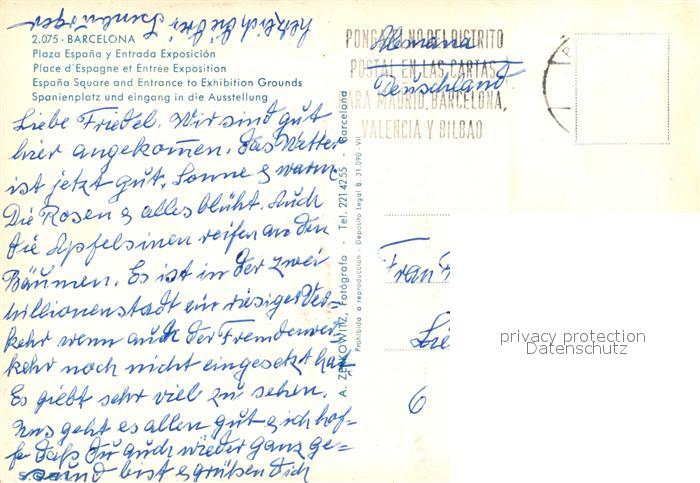 herzlich die drei Isenbürger
2.075 - BARCELONA
Plaza España y Entrada Exposición
Place d'Espagne et Entrée Exposition
España Square and Entrance to Exhibition Grounds
Spanienplatz und eingang in die Ausstellung
Liebe Friedel. Wir sind gut
hier angekommen. Das Wetter
ist jetzt gut. Sonne & warm.
Die Rosen & alles blüht. Auch
die Apfelsinen reifen an den
Bäumen. Es ist in der zwei
millionenstadt ein riesiger Ver=
kehr wenn auch der Fremdenver
kehr noch nicht eingesetzt hat
Es giebt sehr viel zu sehen.
Uns geht es allen gut & ich hof=
fe daß du auch wieder ganz ge=
sund bist & grüßen Dich
A. ZERKOWITZ, Fotógrafo - Tel. 221 42 55 - Barcelona
Prohibida a reproducción - Depósito Legal B. 31.090 - VII
PONGA EL NO DEL DISTRITO
POSTAL EN LAS CARTAS
PARA MADRID, BARCELONA,
VALENCIA Y BILBAO
Alemana
Deutschland
Frau
Lie
6
privacy protection
Datenschutz